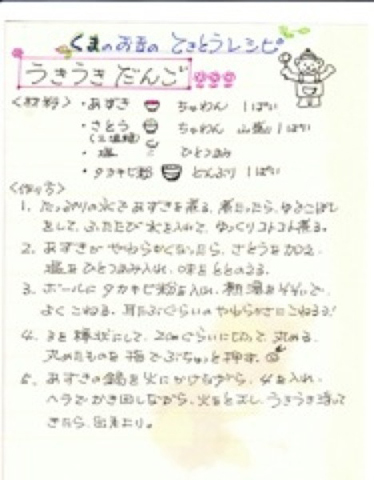 くまのお畜の てきとうレシピ
うきうきだんご
<材料> ・あずき ちゃわん 1ぱい
・さとう ちゃわん 山盛り1ぱい
・塩 ひとつまみ
・タカキビ粉 どんぶり 1ぱい
<作り方>
1. たっぷりの水であずきを煮る。煮たったら、ゆでこぼし
をして、ふたたび水を入れて、ゆっくりコトコト煮る。
2. あずきがやわらかくなったら、さとうを加え、
塩をひとつまみ入れ、味をととのえる。
3. ボールにタカキビ粉を入れ、熱湯をそそいで、
よくこねる。耳たぶぐらいのやわらかさにこねる!
4. 3を棒状にして、2cmぐらいに切って、丸める。
丸めたものを指でぶちゅっと押す。
5. あずきの鍋を火にかけながら、4を入れ、
ヘラでかき回しながら、火をとおし、うきうき浮いて
きたら、出来上り。